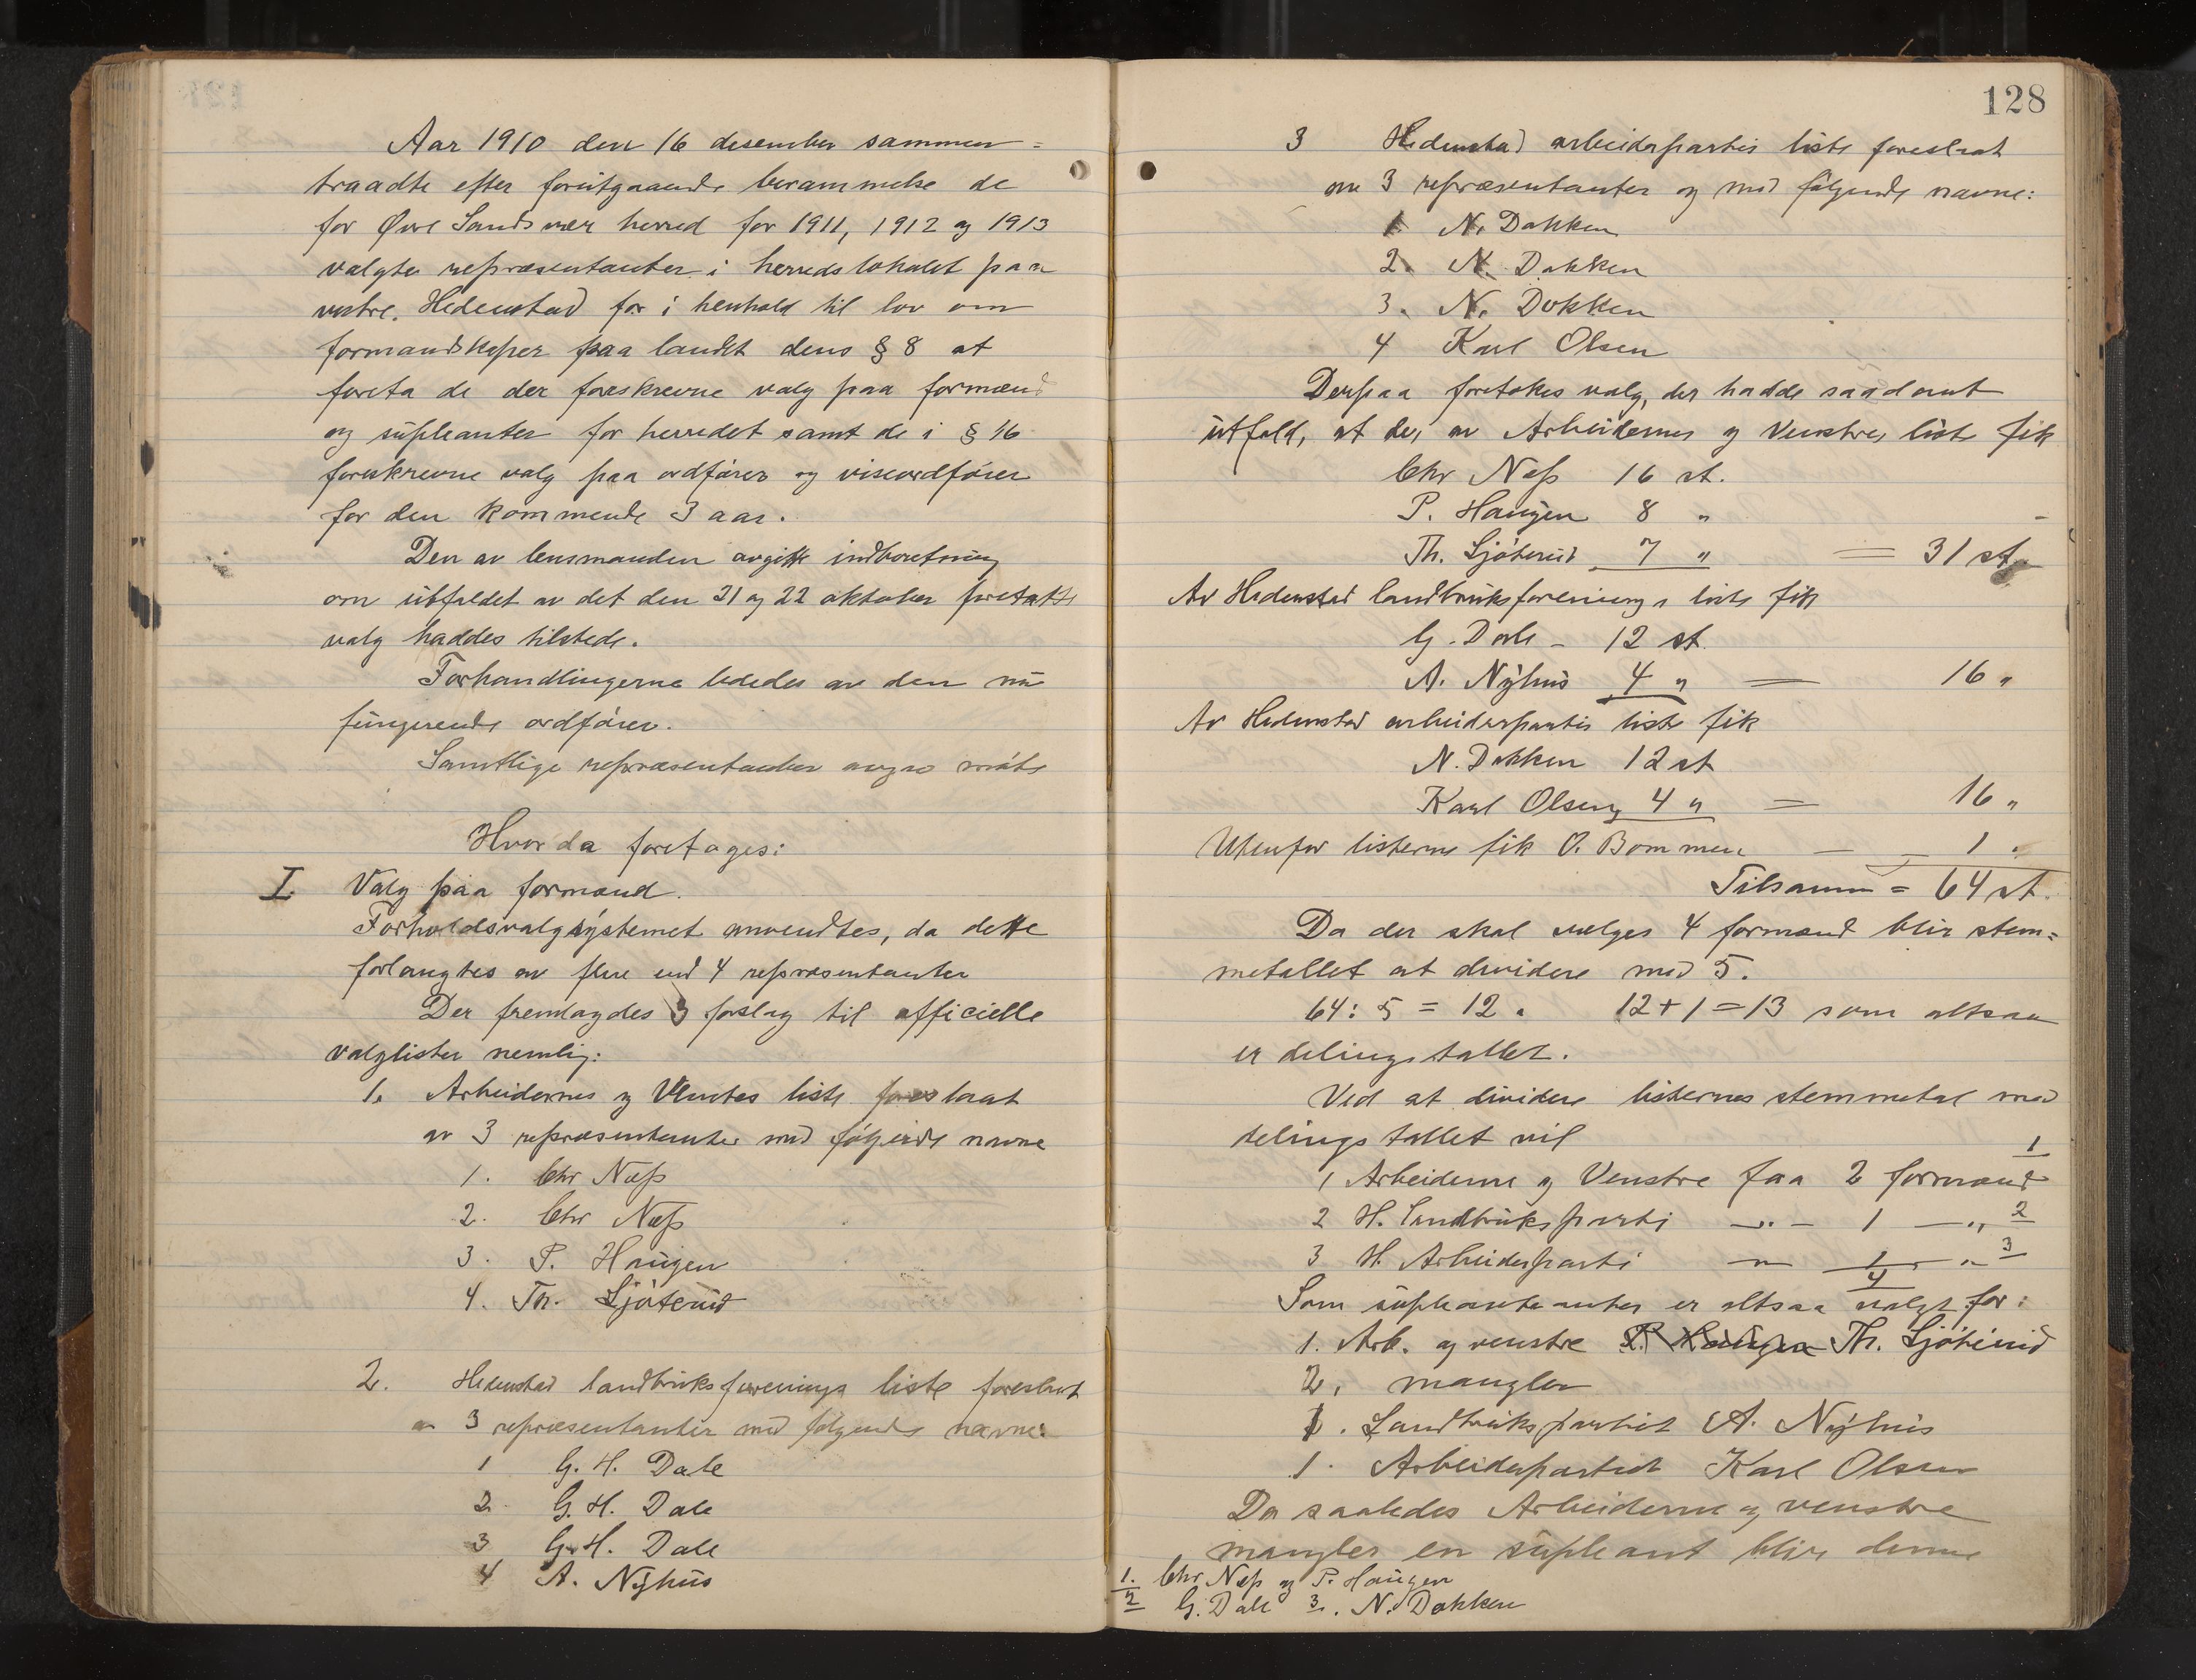 Aar 1910 den 16 desember sammen=
traadte efter forutgaaende berammelse de
for Øvre Sandsvær herred for 1911, 1912 og 1913
valgte repræsentanter i herredslokalet paa
vestre. Hedenstad for i henhold til lov om
formandskaper paa landet dens § 8 at
foreta de der foreskrevne valg paa formænd
og supleanter for herredet samt de i § 16
foreskrevne valg paa ordfører og viseordfører
for den kommende 3 aar.
Den av lensmanden avgitte indberetning
om utfaldet av det den 21 og 22 oktober foretatte
valg haddes tilstede.
Forhandlingerne lededes av den nu
fungerende ordfører.
Samtlige repræsentanter møtte
Hvor da foretages:
I Valg paa formænd.
Forholdsvalgsystemet anvendtes, da dette
forlangtes av flere end 4 repræsentanter
Der fremlagdes 3 forslag til officielle
valglister nemlig:
1. Arbeidernes og Venstres liste foreslaat
av 3 repræsentanter med følgende navne
1. Chr Næss
2. Chr Næss
3. P. Haugen
4. Th. Sjøterud
2. Hedenstad landbruksforenings liste foreslaat
av 3 repræsentanter med følgende navne:
1 G. H. Dale
2. G. H. Dale
3 G. H. Dale
4 A. Nyhus
128
3 Hedenstad arbeiderpartis liste foreslaat
av 3 repræsentanter og med følgende navne:
1. N. Dokken
2. N. Dokken
3. N. Dokken
4 Karl Olsen
Derpaa foretokes valg, der hadde saadant
utfald, at der av Arbeidernes og Venstres liste fik
Chr Næss 16 st.
P. Haugen 8 "
Th. Sjøterud 7 " = 31 st.
Av Hedenstad landbruksforenings liste fik
G. Dale - 12 st.
A. Nyhus 4 " = 16 "
Av Hedenstad arbeiderpartis liste fik
N. Dokken 12 st
Karl Olsen 4 " = 16 "
Utenfor listerne fik O. Bommen — 1 "
Tilsamm = 64 st.
Da der skal vælges 4 formænd blir stem=
metallet at dividere med 5.
64 : 5 = 12. 12 + 1 = 13 som altsaa
er delingstallet.
Ved at dividere listernes stemmetal med
delingstallet vil
1 Arbeiderne og Venstre faa 2 formænd 1
2 H. landbruksparti —"— 1 —" 2
3 H. Arbeiderparti —"— 1 —" 3
4
Som supleanter er altsaa valgt for:
1. Arb. og venstre P. Haugen Th. Sjøterud
2. mangler
1. Landbrukspartiet A. Nyhus
1. Arbeiderpartiet Karl Olsen
Da saaledes Arbeiderne og venstre
mangler en supleant blir denne
1. Chr Næss og P. Haugen
2 G. Dale 3. N. Dokken